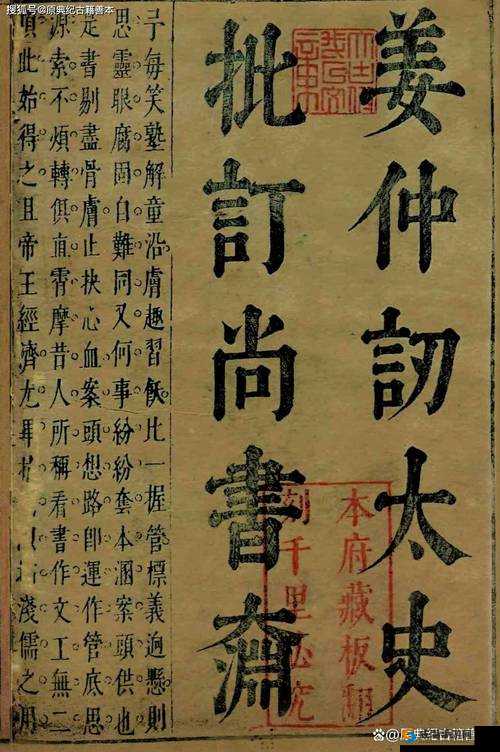 搜狐号@原典纪古籍善本
姜仲訒太史
批訂尚書齋
本府藏板翻
刻千里必究
予每笑塾解童沿膚趣習飫比一握管標義逈懸則
思靈眼腐固自難同又何事紛紛套本溷案頭供也
是書剔盡骨膚止抉心血案頭想路即運作管底思
源索不煩轉俱直霄摩昔人所稱看書作文工無二
項此始得之且帝王經濟尤 淺儒之用
@原典纪古籍